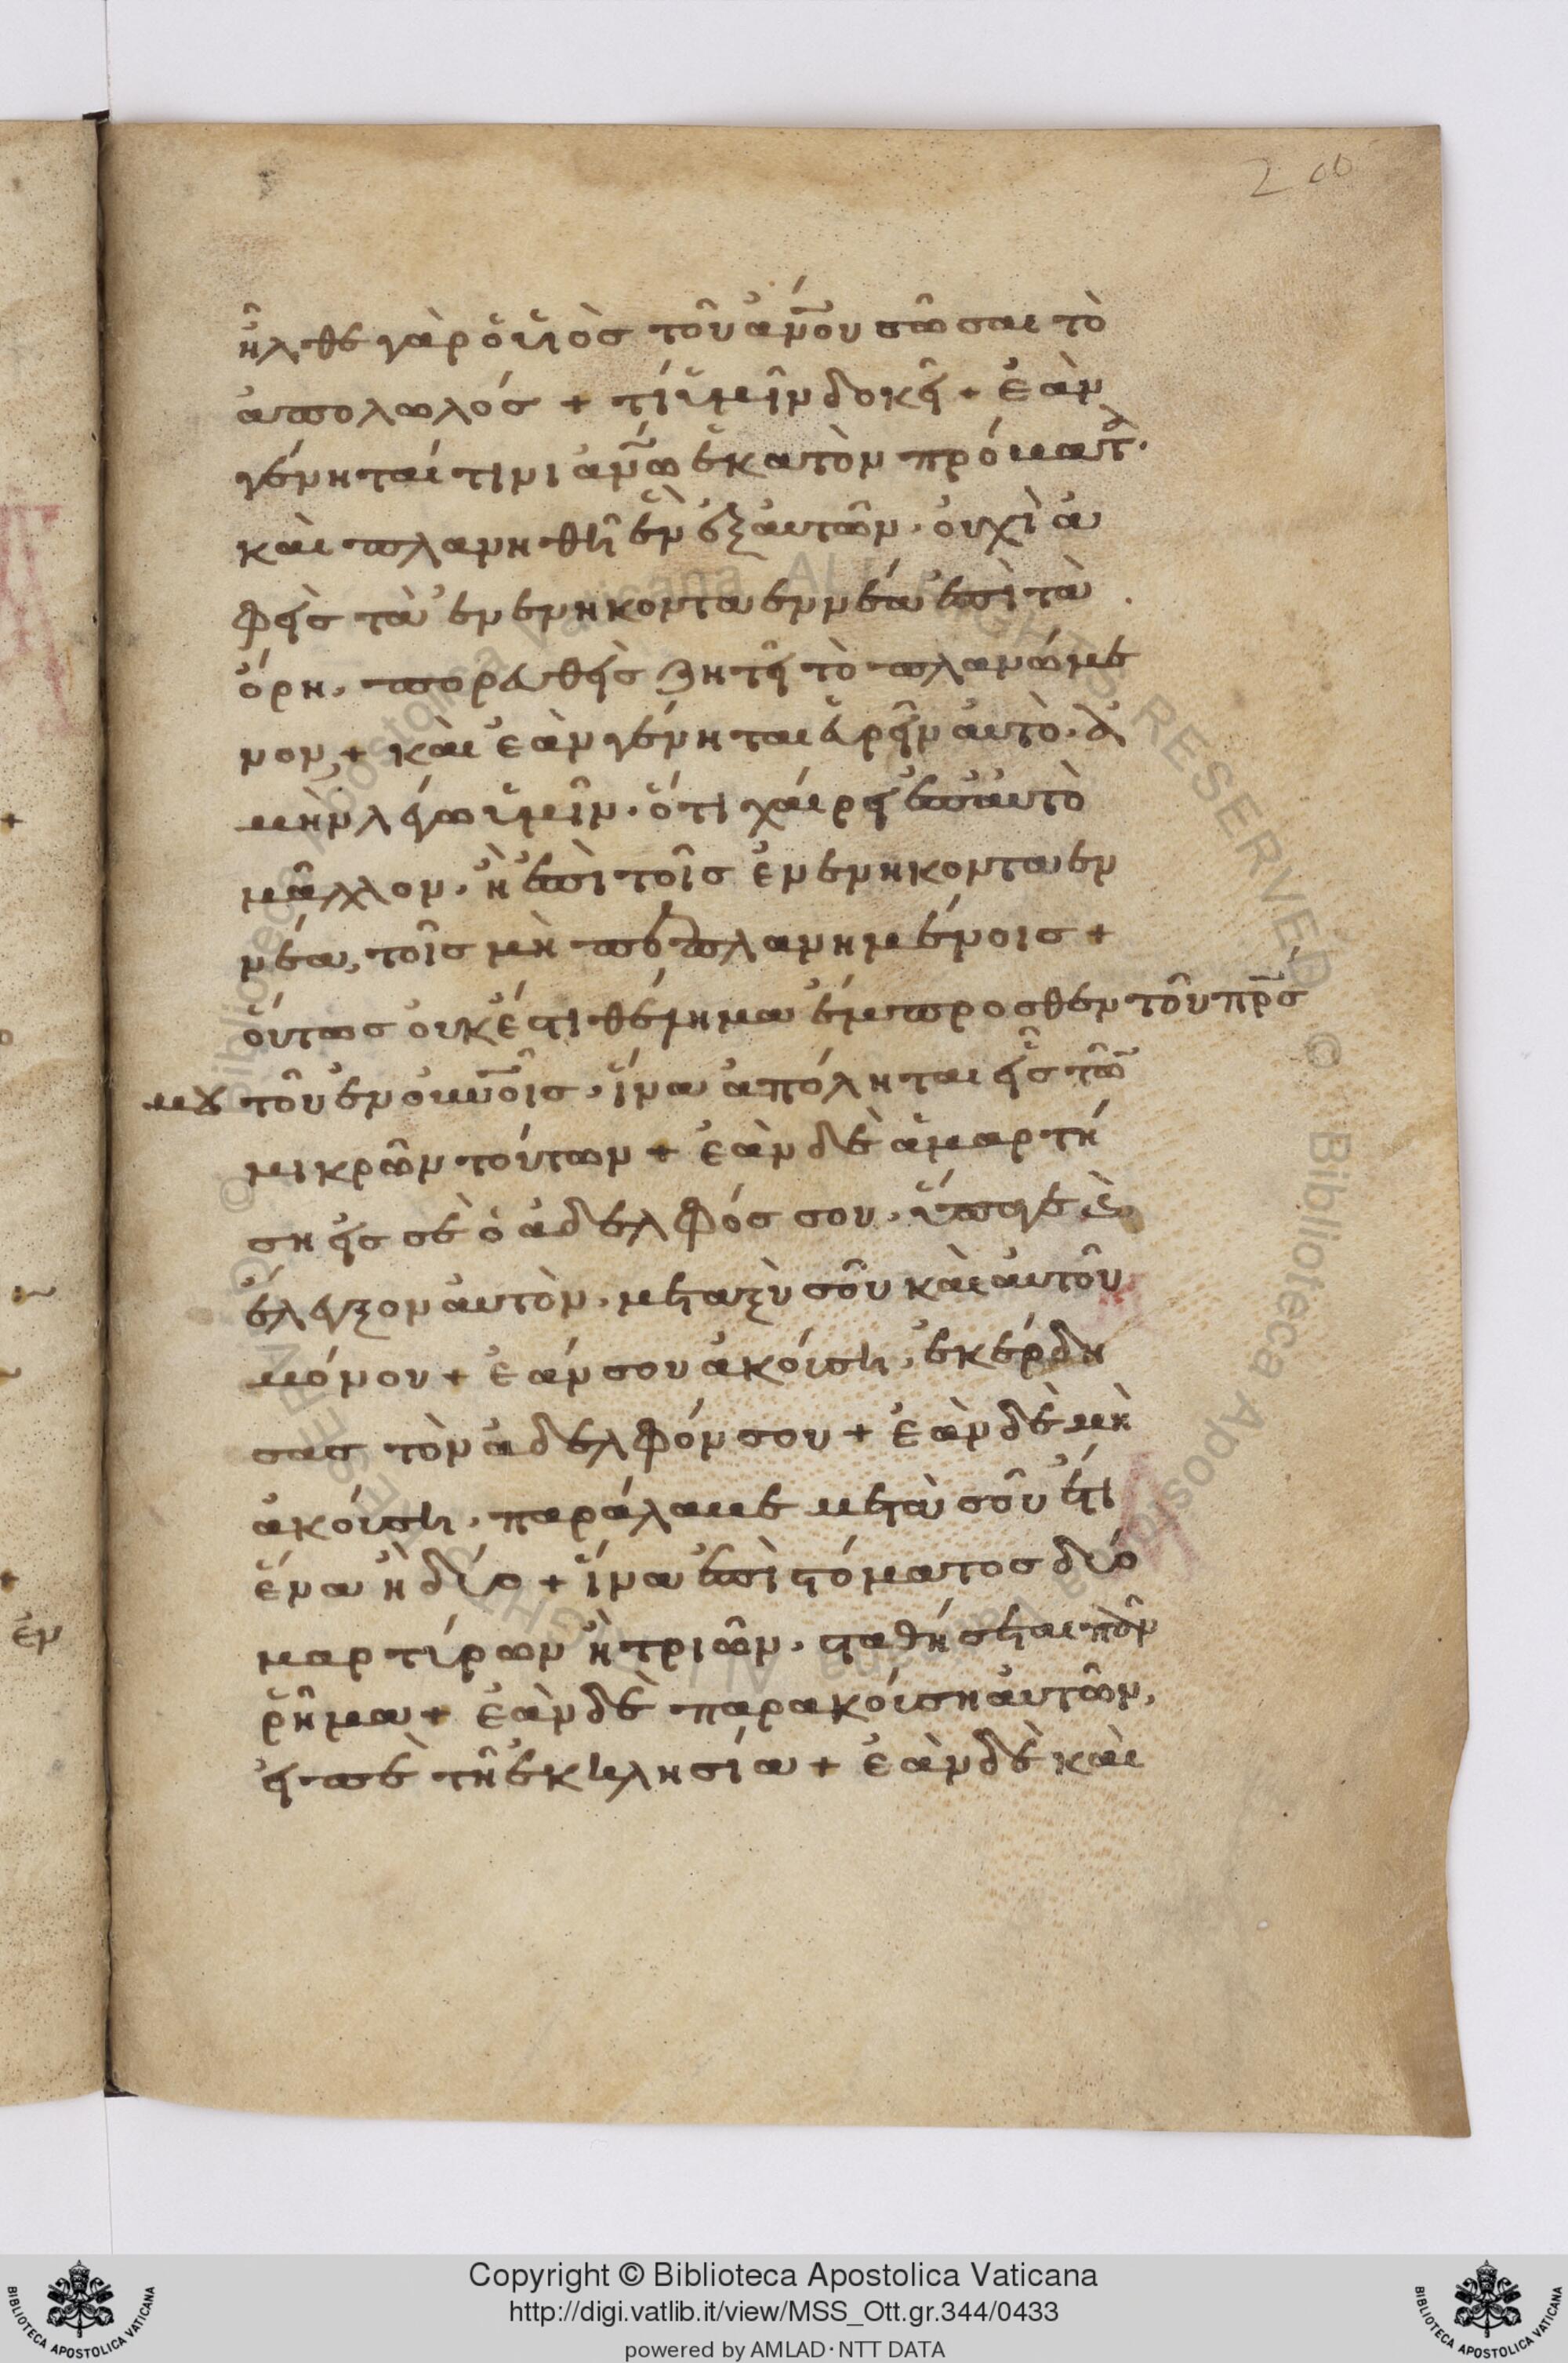 200
ἦλθε γὰρ ὁ ὑιὸσ τοῦ ἀνου σῶσαι τὸ
ἀπολωλόσ + τί ὑμῖν δοκεῖ + ἐὰν
γένηταί τινι ἀνω ἑκατὸν πρόβατ.
καὶ πλανηθῆ ἓν ἐξ αὐτῶν. οὐχὶ ἀ
φεὶσ τὰ ἐνενηκονταεννέα ἐπὶ τὰ
ὄρη. πορευθεὶσ ζητεῖ τὸ πλανώμε
νον + καὶ ἐὰν γένηται εὑρεῖν αὐτὸ. ἀ
μὴν λέγω ὑμῖν. ὅτι χαίρει ἐπ αὐτὸ
μᾶλλον. ἢ ἐπὶ τοῖσ ἐνενηκονταεν
νέα, τοῖσ μὴ πεπλανημένοισ +
οὕτωσ οὐκ ἔστι θέλημα ἔμπροσθεν τοῦ πρσ
μου τοῦ ἐν οὐνοῖσ. ἵνα ἀπόληται εἷσ τῶ
μικρῶν τούτων + ἐὰν δὲ ἁμαρτή
ση εἰσ σὲ ὁ ἀδελφόσ σου. ὕπαγε
ἔλεγξον αὐτὸν. μεταξὺ σοῦ καὶ αὐτοῦ
μόνου + ἐάν σου ἀκούση, ἐκέρδη
σασ τὸν ἀδελφόν σου + ἐὰν δὲ μὴ
ἀκούση. παράλαβε μετὰ σοῦ ἔτι
ἕνα ἢ δύο + ἵνα ἐπὶ στόματοσ δύο
μαρτύρων ἢ τριῶν. σταθήσεται πᾶν
ῥῆμα + ἐὰν δὲ παρακούση αὐτῶν,
εἰπὲ τῆ ἐκκλησία + ἐὰν δὲ καὶ
ἐν
Copyright © Biblioteca Apostolica Vaticana
http://digi.vatlib.it/view/MSS_Ott.gr.344/0433
powered by AMLAD·NTT DATA
BIBLIOTECA APOSTOLICA VATICANA
BIBLIOTECA APOSTOLICA VATICANA